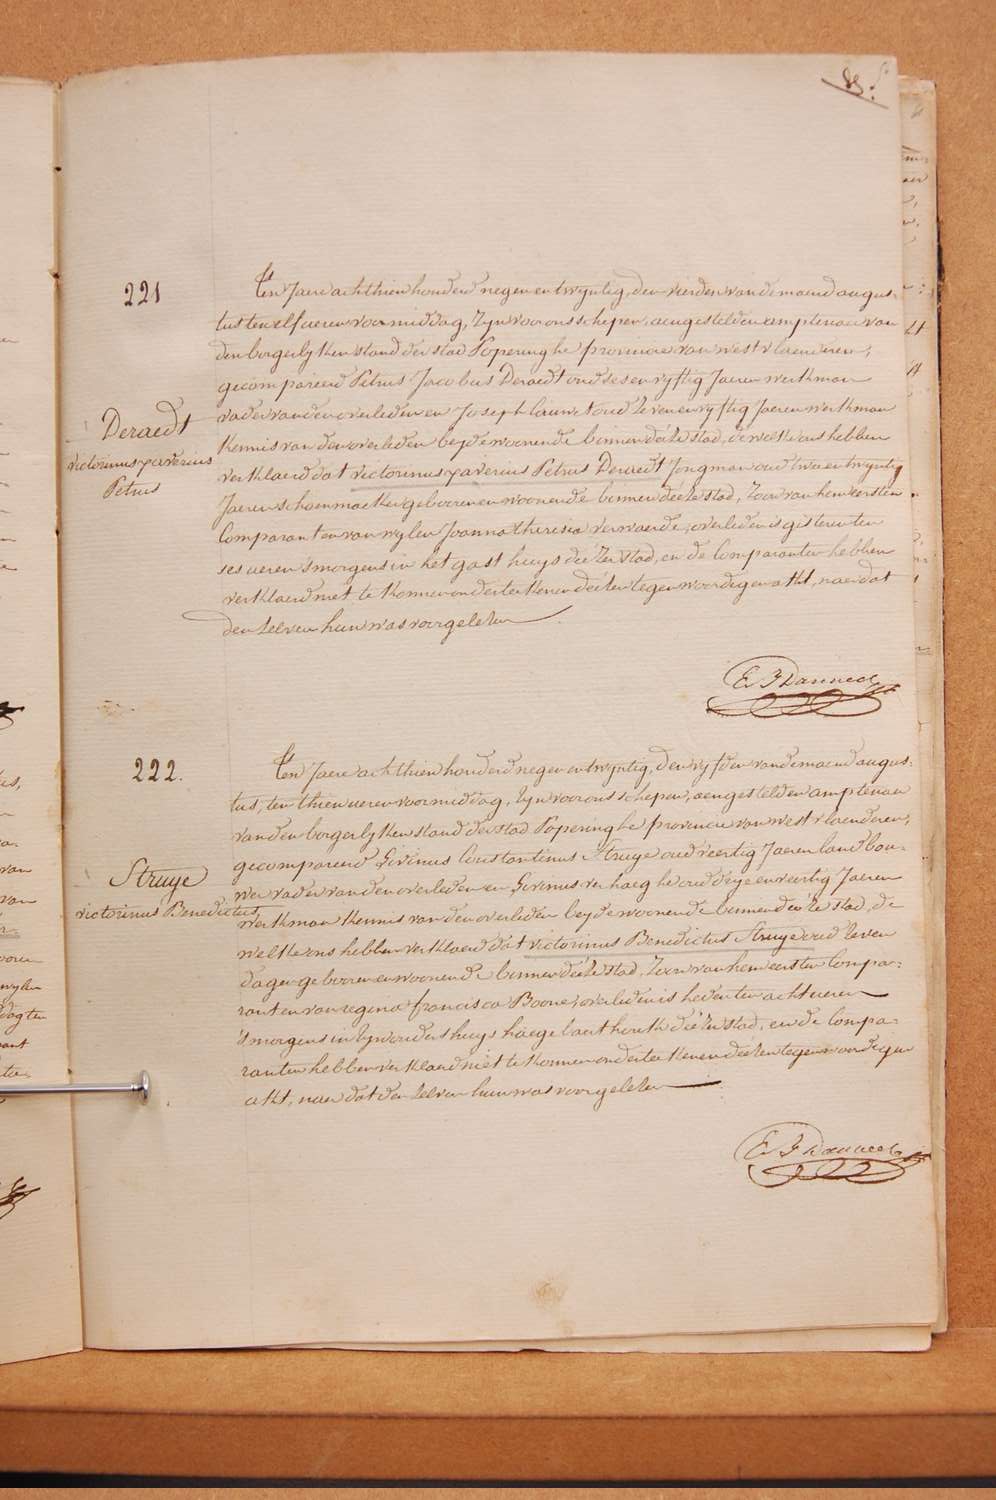 85.
221
Deraedt
victorinus xaverius
Petrus
Ten Jaere achthien honderd negen en twyntig, den vierden van de maend augus-
tus ten elf ueren voormiddag, Zyn voor ons schepen, aengestelden amptenaer van
den borgerlyken stand der stad Poperinghe provincie van westvlaenderen,
gecompareerd Petrus Jacobus Deraedt oud ses en vyftig Jaeren werkman
vader van den overleden en Joseph oud zeven en vyftig Jaeren werkman
kennis van den overleden beyde woonende binnen deéze stad, dewelke ons hebben
verklaerd dat victorinus xaverius Petrus Deraedt Jongman oud twee en twyntig
Jaeren schoenmaeker gebooren en woonende binnen deéze stad, Zoon van hem eersten
Comparant en van wylen Joanna theresia verwaerde, overleden is gisteren ten
ses ueren 's morgens in het gasthuys deézer stad, en de Comparanten hebben
verklaerd niet te konnen onderteekenen deézen tegenwoordigen akt, naer dat
den zelven hun was voorgelezen
E. F. Danneel
222.
Struye
victorinus Benedictus
Ten Jaere achthien honderd negen en twyntig, den vyfden van de maend augus-
tus, ten thien ueren voormiddag, Zyn voor ons schepen, aengestelden amptenaer
van den borgerlyken stand der stad Poperinghe provincie van westvlaenderen,
gecompareerd Livinus Constantinus Struye oud veertig Jaeren landbou-
wer vader van den overleden en Livinus verhaeghe oud drye en veertig Jaeren
werkman kennis van den overleden beyde woonende binnen deéze stad, de
welke ons hebben verklaerd dat victorinus Benedictus Struye oud zeven
dagen gebooren en woonende binnen deéze stad, Zoon van hem eersten Compa-
rant en van regina francisca Boone, overleden is heden ten acht ueren
's morgens in zyn ouders huys haegebaerthoek deézer stad, en de Compa-
ranten hebben verklaerd niet te konnen onderteekenen deézen tegenwoordigen
akt, naer dat den zelven hun was voorgelezen
E. F. Danneel